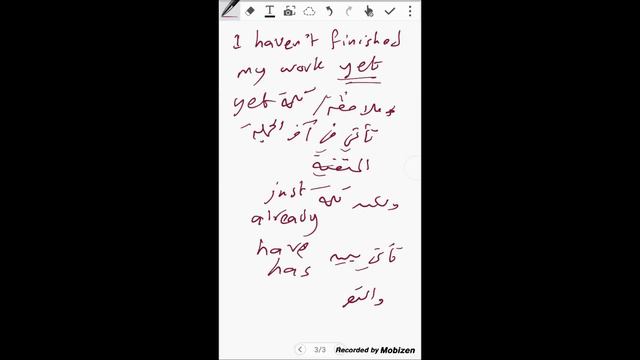 I haven't finished
my work yet
ملاحظة / كلمة yet
تأتي في آخر الجملة
المنفية
ولكن كلمة just
already
تأتي بين have
has
3/3
Recorded by Mobizen